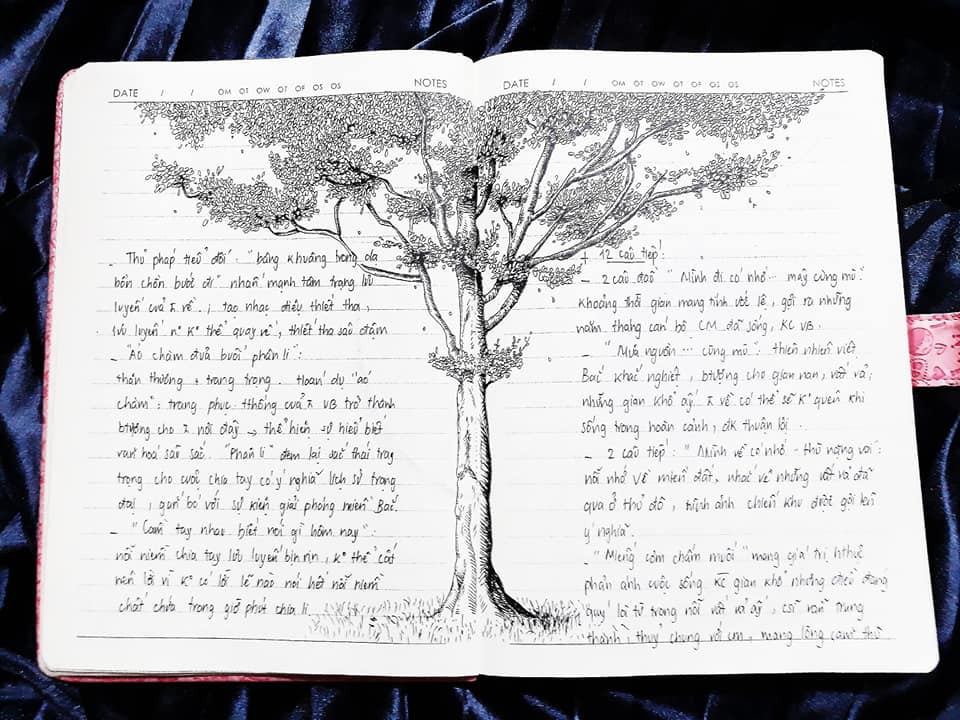 DATE / / OM OT OW OT OF OS OS NOTES
_ Thủ pháp tiểu đối: "bâng khuâng trong dạ
bồn chồn bước đi" nhấn mạnh tâm trạng lưu
luyến của
về ; tạo nhạc điệu thiết tha,
lưu luyến
K° thể quay về, thiết tha sâu đậm
_ "Áo chàm đưa buổi phân li":
thân thương + trang trọng. Hoán dụ "áo
chàm": trang phục tthống của
VB trở thành
btượng cho
nơi đây → thể hiện sự hiểu biết
văn hoá sâu sắc. "Phân li" đem lại sắc thái tray
trọng cho cuộc chia tay có ý nghĩa lịch sử trọng
đại, gắn bó với sự kiện giải phóng miền Bắc.
_ "Cầm tay nhau biết nói gì hôm nay":
nỗi niềm chia tay lưu luyến bịn rịn, K° thể cất
nên lời vì K° có lời lẽ nào nói hết nỗi niềm
chất chứa trong giờ phút chia li.
DATE / / OM OT OW OT OF OS OS NOTES
+ 12 câu tiếp:
_ 2 câu đầu "Mình đi có nhớ ... mây cùng mù":
Khoảng thời gian mang tính ước lệ, gợi ra những
năm tháng cán bộ CM đã sống, KC VB.
_ "Mưa nguồn ... cùng mù": thiên nhiên Việt
Bắc khắc nghiệt, btượng cho gian nan, vất vả;
những gian khổ ấy
về có thể sẽ K° quên khi
sống trong hoàn cảnh, đk thuận lợi.
_ 2 câu tiếp: "Mình về có nhớ - thù nặng vai":
nỗi nhớ về miền đất, nhắc về những vất vả đã
qua ở thủ đô, hình ảnh chiến khu được gợi lên
ý nghĩa.
"Miếng cơm chấm muối" mang giá trị hthực
phản ánh cuộc sống KC gian khổ nhưng điều đáng
quý là từ trong nỗi vất vả ấy,
vẫn trung
thành, thuỷ chung với cm, mang lòng căm thù